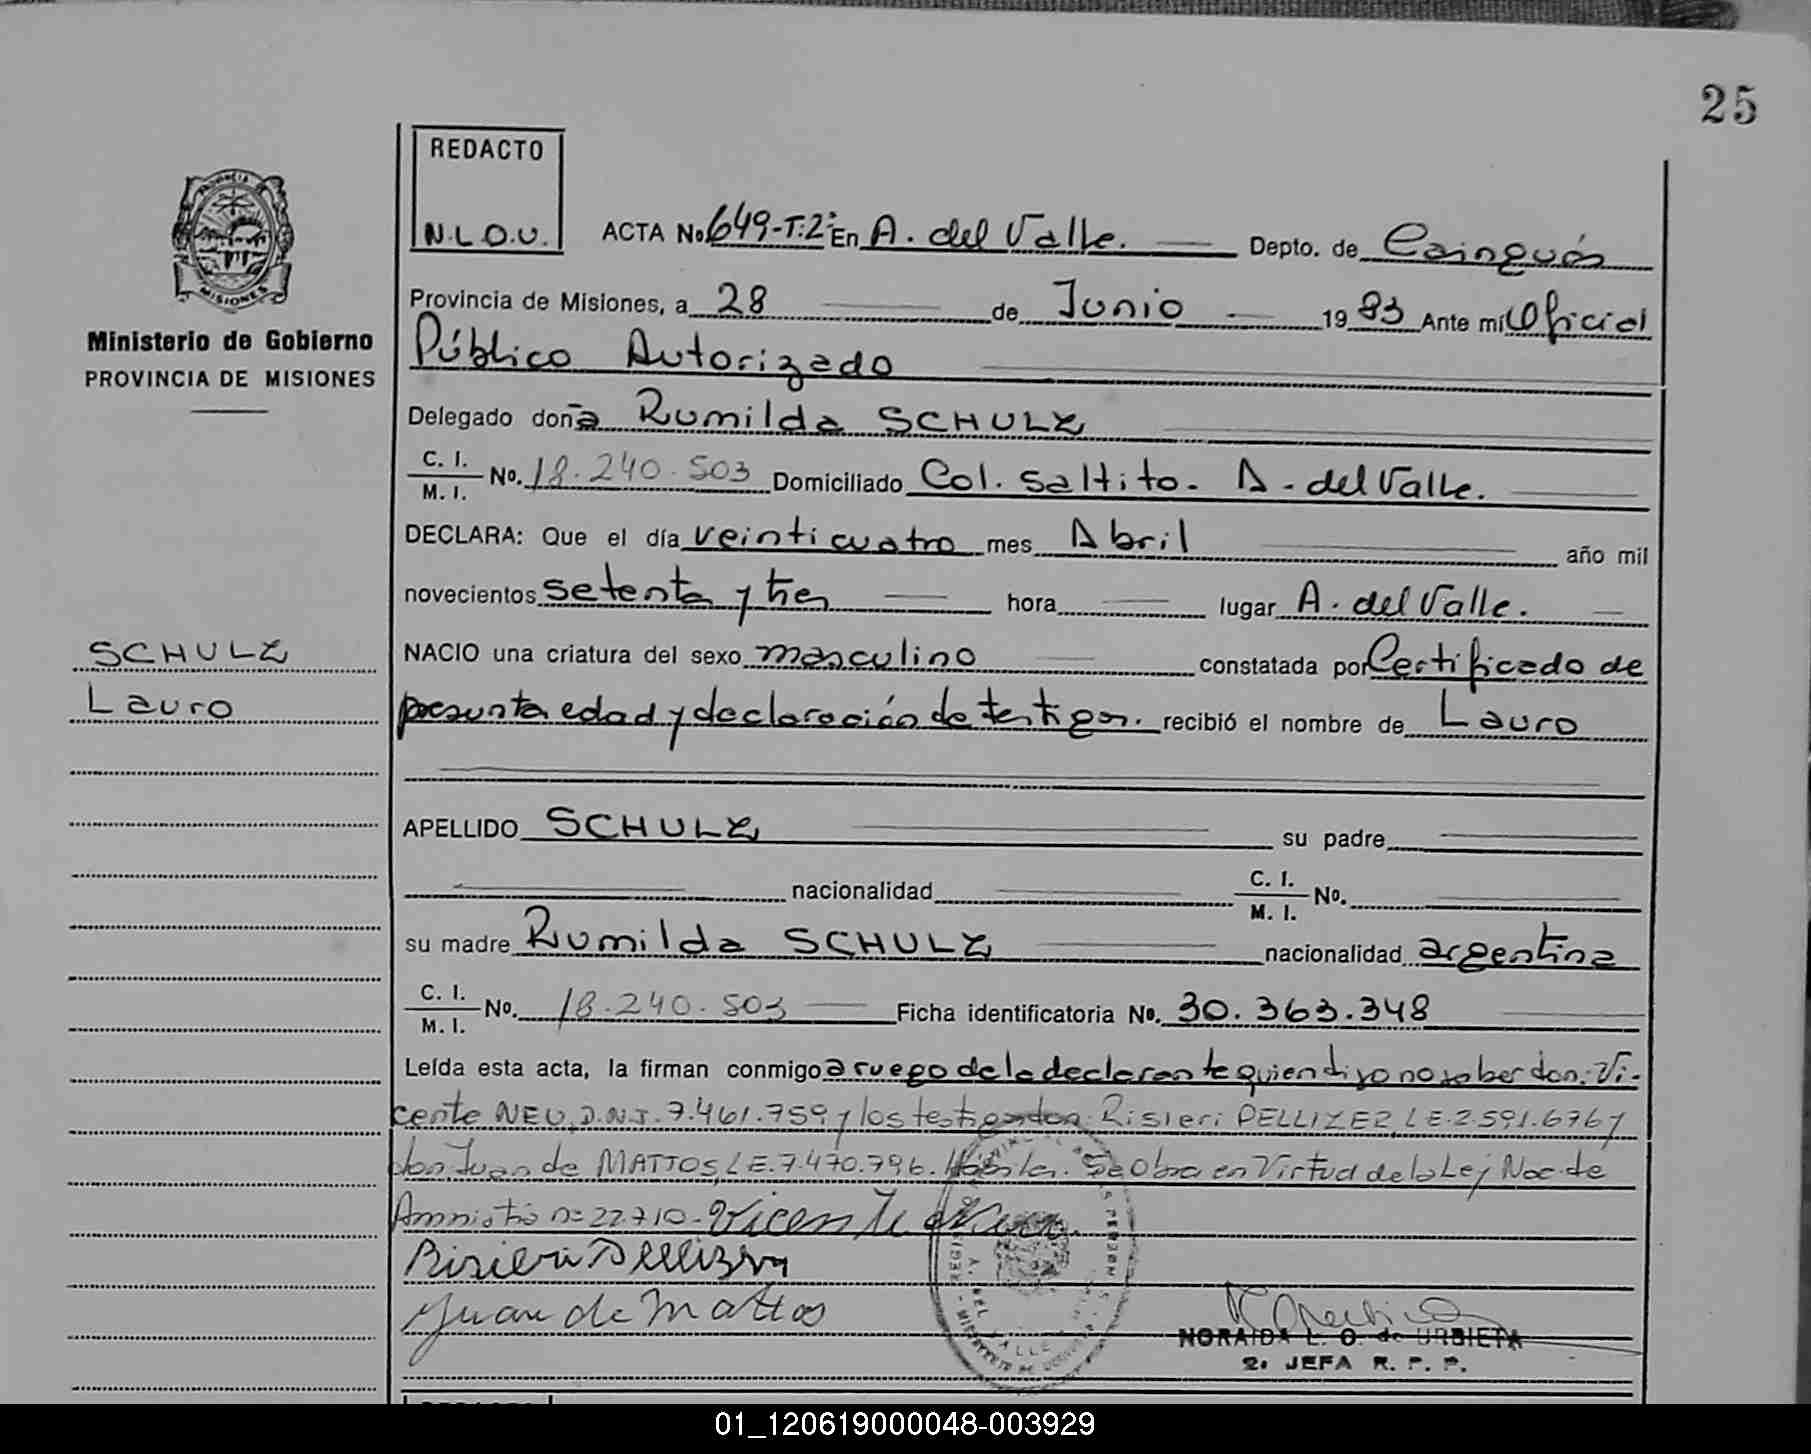 25
REDACTO
N.L.O.U.
ACTA No 649-T:2º En A. del Valle. Depto. de Cainguás
Provincia de Misiones, a 28 de Junio 1983 Ante mi Oficial
Ministerio de Gobierno
PROVINCIA DE MISIONES
Público Autorizado
Delegado doña Rumilda SCHULZ
C. I.
M. I. No. 18.240.503 Domiciliado Col. Saltito. A. del Valle.
DECLARA: Que el día veinticuatro mes Abril año mil
novecientos setenta y tres hora lugar A. del Valle.
SCHULZ
Lauro
NACIO una criatura del sexo masculino constatada por Certificado de
presunta edad y declaración de testigos. recibió el nombre de Lauro
APELLIDO SCHULZ su padre
nacionalidad C. I.
M. I. No.
su madre Rumilda SCHULZ nacionalidad argentina
C. I.
M. I. No. 18.240.503 Ficha identificatoria No. 30.363.348
Leída esta acta, la firman conmigo a ruego de la declarante quien dijo no saber don: Vi-
cente NEU, D.N.I. 7.461.759 y los testigos don Risieri PELLIZER, L E. 2.591.676 y
don Juan de MATTOS, L E. 7.470.796. Hábiles. Se Obra en Virtud de la Ley Nac. de
Amnistía nº 22.710. Vicente Neu
Risieri Pellizer
Juan de Mattos
NORAIDA L. O. de URBIETA
2ª JEFA R. P. P.
A. DEL VALLE
01_120619000048-003929